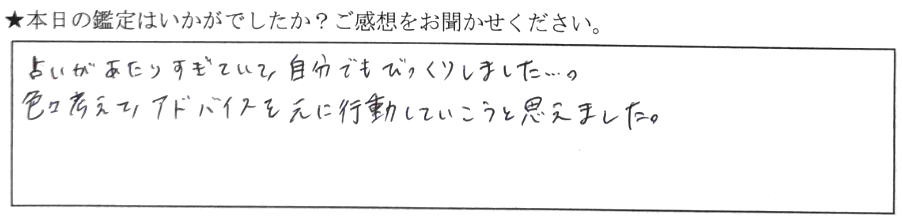 ★本日の鑑定はいかがでしたか？ご感想をお聞かせください。
占いがあたりすぎていて、自分でもびっくりしました…。
色々考えて、アドバイスを元に行動していこうと思えました。